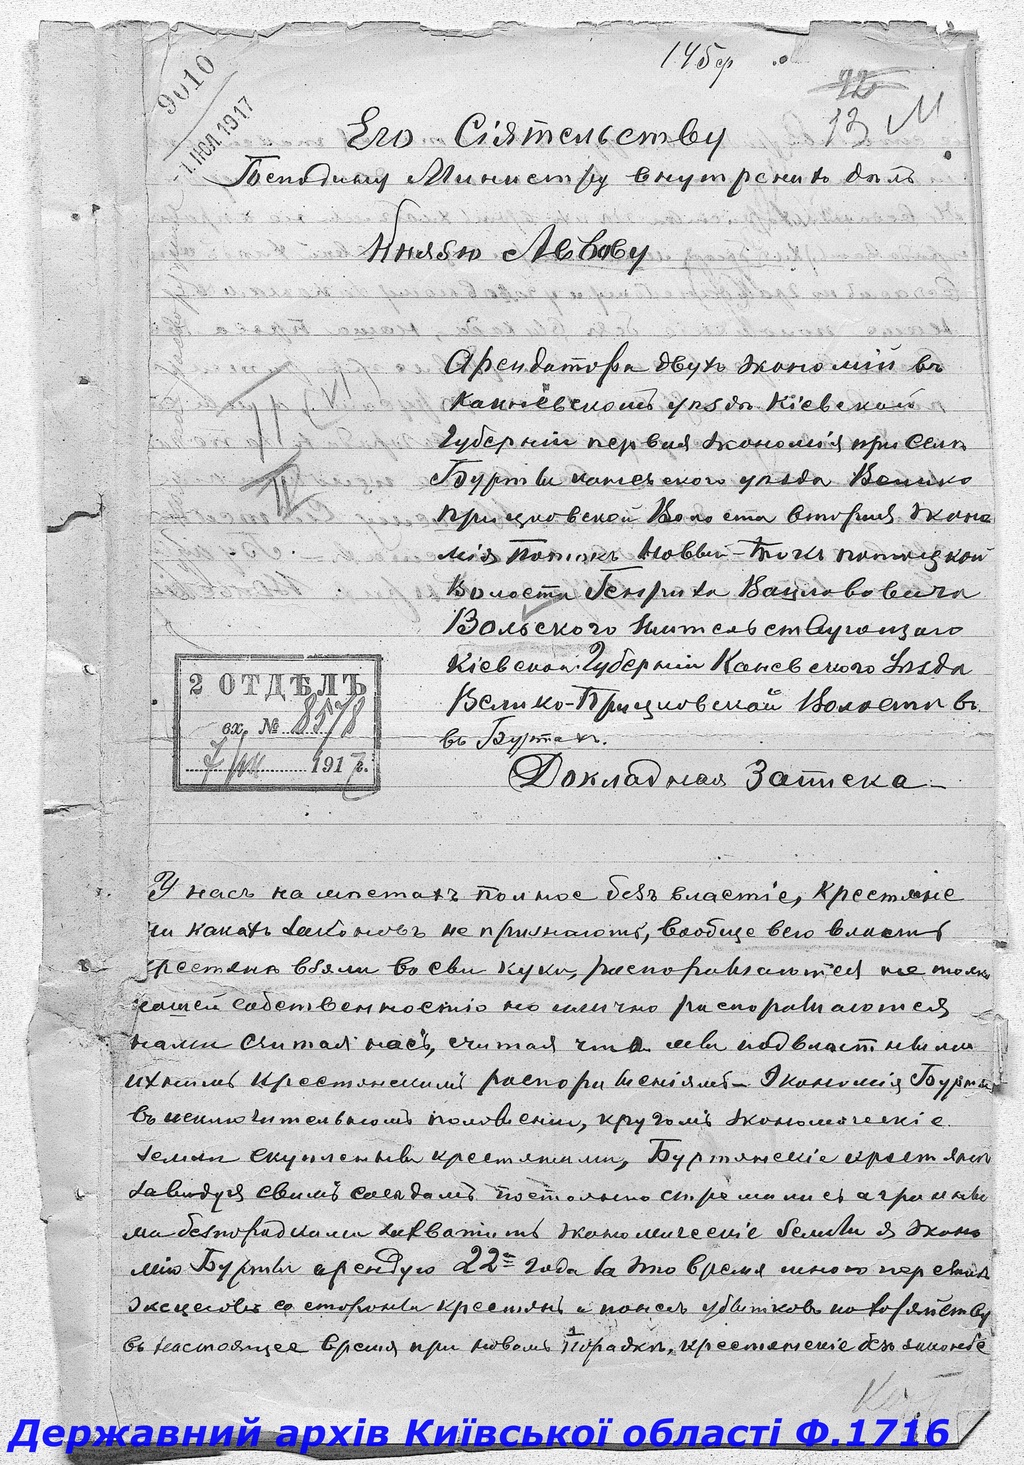 9010
1 ИЮЛ 1917
22
13
Его Сіятельству
Господину Министру внутренних дѣлъ
Князю Львову
Арендатора двухъ экономій въ
Каневскомъ уѣздѣ Кіевской
Губерніи первая экономія при селѣ
Бурты каневского уѣзда Велико
прицковской Волости вторая эконо
мія Потокъ Новый
Волости Генриха Вацлавовича
Вольского жительствующаго
Кіевской Губерніи Каневского Уѣзда
Велико-Прицковской Волости въ
въ Буртахъ.
2 ОТДѢЛЪ
вх. № 8578
7/VII 1917 г.
Докладная Записка
У насъ на мѣстахъ полное безъ властіе, крестяне
ни какихъ законовъ не признаютъ, вообще всю власть
крестяне взяли во сви руки, распоряжаются не только
нашей собственностію но лично распоряжаются
нами считая насъ, считая что мы подвластными
ихнимъ крестянскимъ распоряженіямъ – Экономія Бурты
въ исключительномъ положеніи, кругомъ экономическіе
земли скуплены крестянами, Буртянскіе крестяне
завидуя своимъ соседамъ постоянно стремились аграрны
ми безпорядками захватить экономическіе земли я эконо
мію Бурты арендую 22 года за это время много перенёс
эксцесовъ со стороны крестянъ и понесъ убытковъ по хозяйству
въ настоящее время при новомъ порядкѣ, крестянскіе
Державний архів Київської області Ф.1716